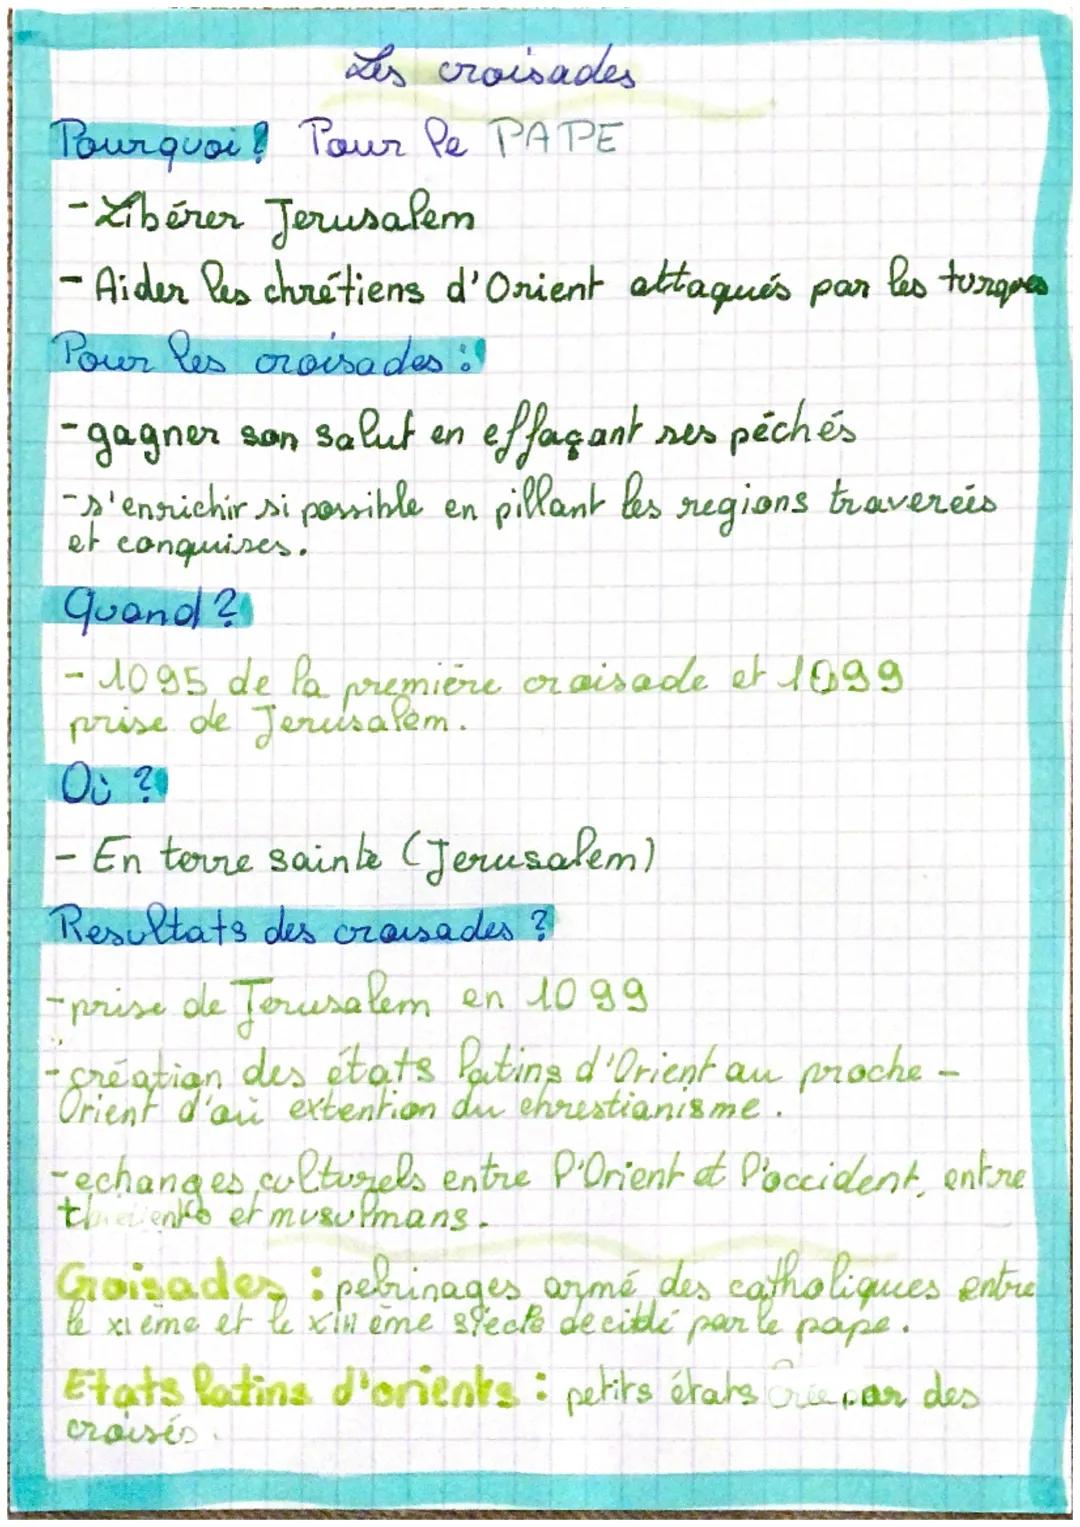 Les croisades
Pourquoi ? Pour le PAPE
- Libérer Jerusalem
- Aider les chrétiens d'Orient attaqués par les turques
Pour les croisades :
- gagner son salut en effaçant ses péchés
- s'enrichir si possible en pillant les regions traverées
et conquises.
Quand ?
- 1095 de la première croisade et 1099
prise de Jerusalem.
Où ?
- En terre sainte (Jerusalem)
Resultats des croisades ?
- prise de Jerusalem en 1099
- création des états latins d'Orient au proche -
Orient d'où extention du chrestianisme.
- echanges culturels entre l'Orient et l'occident, entre
et musulmans.
Croisades : pelrinages armé des catholiques entre
le XI ème et le XIII ème siècle decidé par le pape.
Etats latins d'orients : petits états crée par des
croisés.